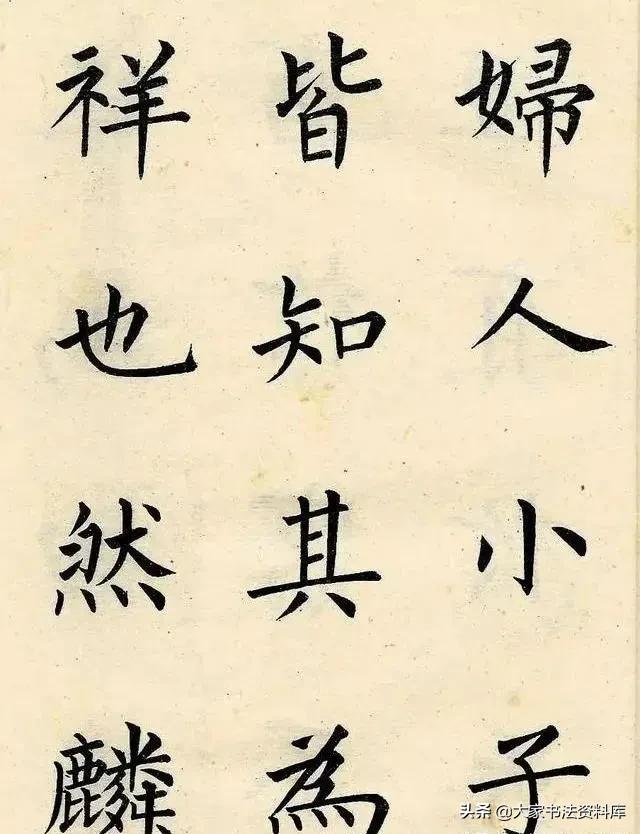 婦人小子
皆知其為
祥也然麟
头条 @大家书法资料库